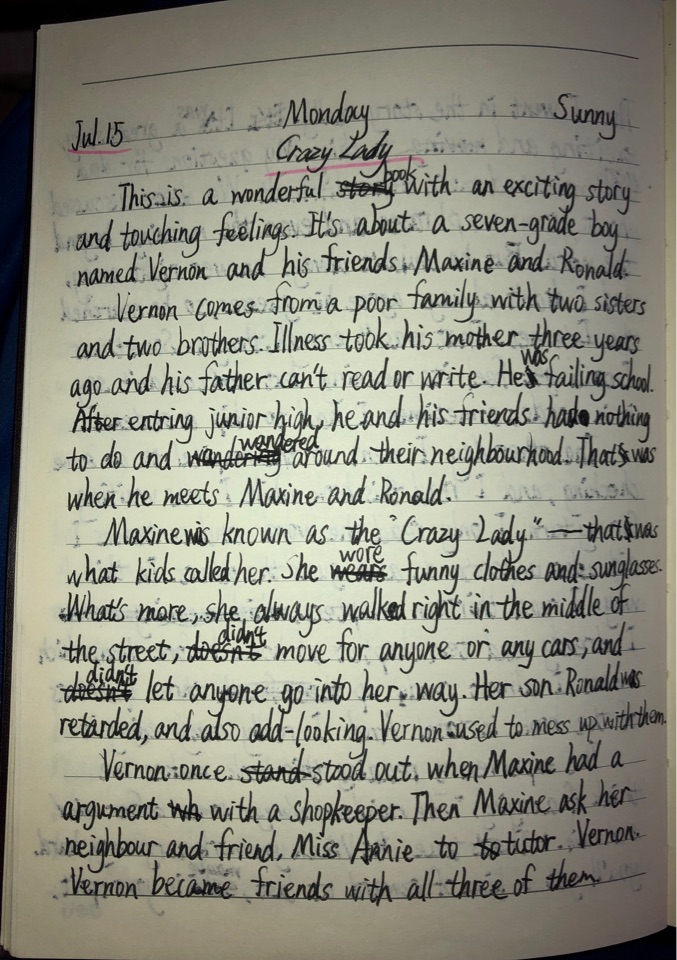 Jul. 15 Monday Sunny
Crazy Lady
This is a wonderful story book with an exciting story
and touching feelings. It's about a seven-grade boy
named Vernon and his friends. Maxine and Ronald.
Vernon comes from a poor family with two sisters
and two brothers. Illness took his mother three years
ago and his father can't read or write. He was failing school.
After entring junior high, he and his friends had nothing
to do and wandering wandered around their neighbourhood. That was
when he meets Maxine and Ronald.
Maxine was known as the "Crazy Lady" — that was
what kids called her. She wears wore funny clothes and sunglasses.
What's more, she always walked right in the middle of
the street, doesn't didn't move for anyone or any cars, and
doesn't didn't let anyone go into her way. Her son Ronald was
retarded, and also add-looking. Vernon used to mess up with them.
Vernon once stand stood out when Maxine had a
argument wh with a shopkeeper. Then Maxine ask her
neighbour and friend, Miss Annie to to tutor Vernon.
Vernon became friends with all three of them.